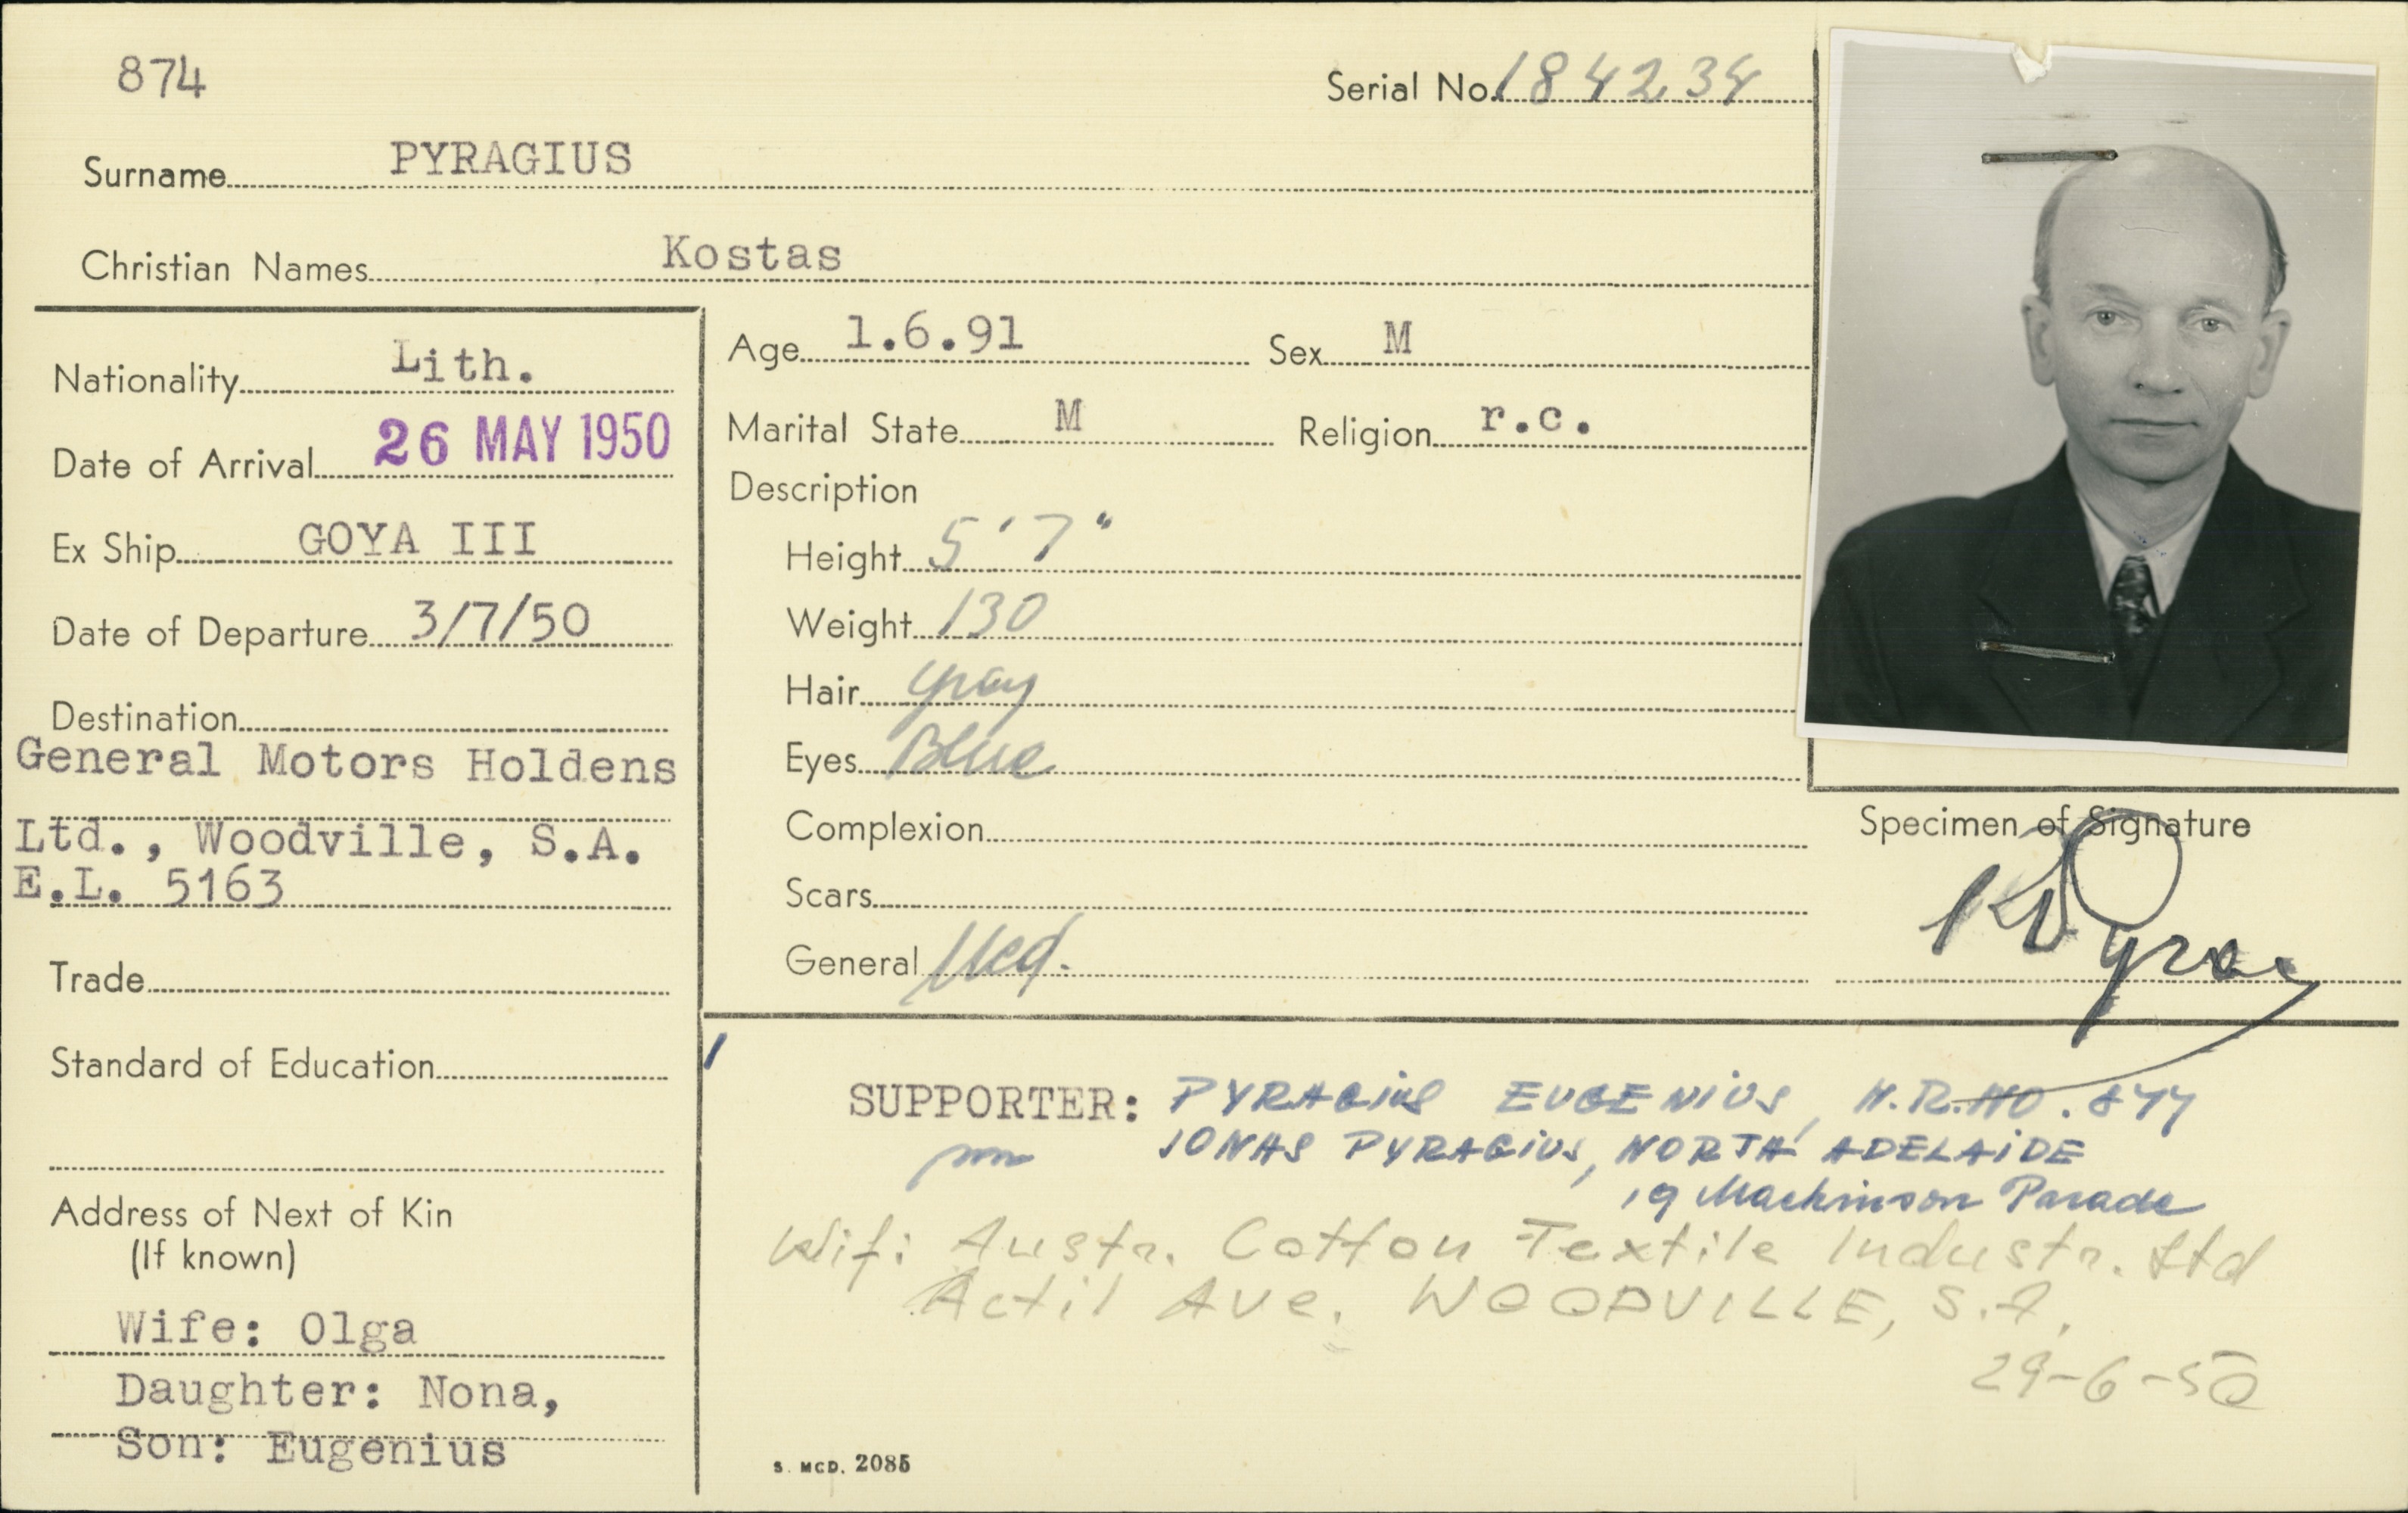 874
Serial No. 184234
Surname PYRAGIUS
Christian Names Kostas
Nationality Lith.
Date of Arrival 26 MAY 1950
Ex Ship GOYA III
Date of Departure 3/7/50
Destination
General Motors Holdens
Ltd., Woodville, S.A.
E.L. 5163
Trade
Standard of Education
Address of Next of Kin
(If known)
Wife: Olga
Daughter: Nona,
Son: Eugenius
Age 1.6.91 Sex M
Marital State M Religion r.c.
Description
Height 5'7"
Weight 130
Hair gray
Eyes Blue
Complexion
Scars
General Med.
Specimen of Signature
K Pyrag
SUPPORTER: PYRAGIUS EUGENIUS, H.R.NO. 877
JONAS PYRAGIUS, NORTH ADELAIDE
19 Mackinson Parade
Wif: Austr. Cotton Textile Industr. Ltd
Actil Ave. WOODVILLE, S.A.
29-6-50
S. MCD. 2085